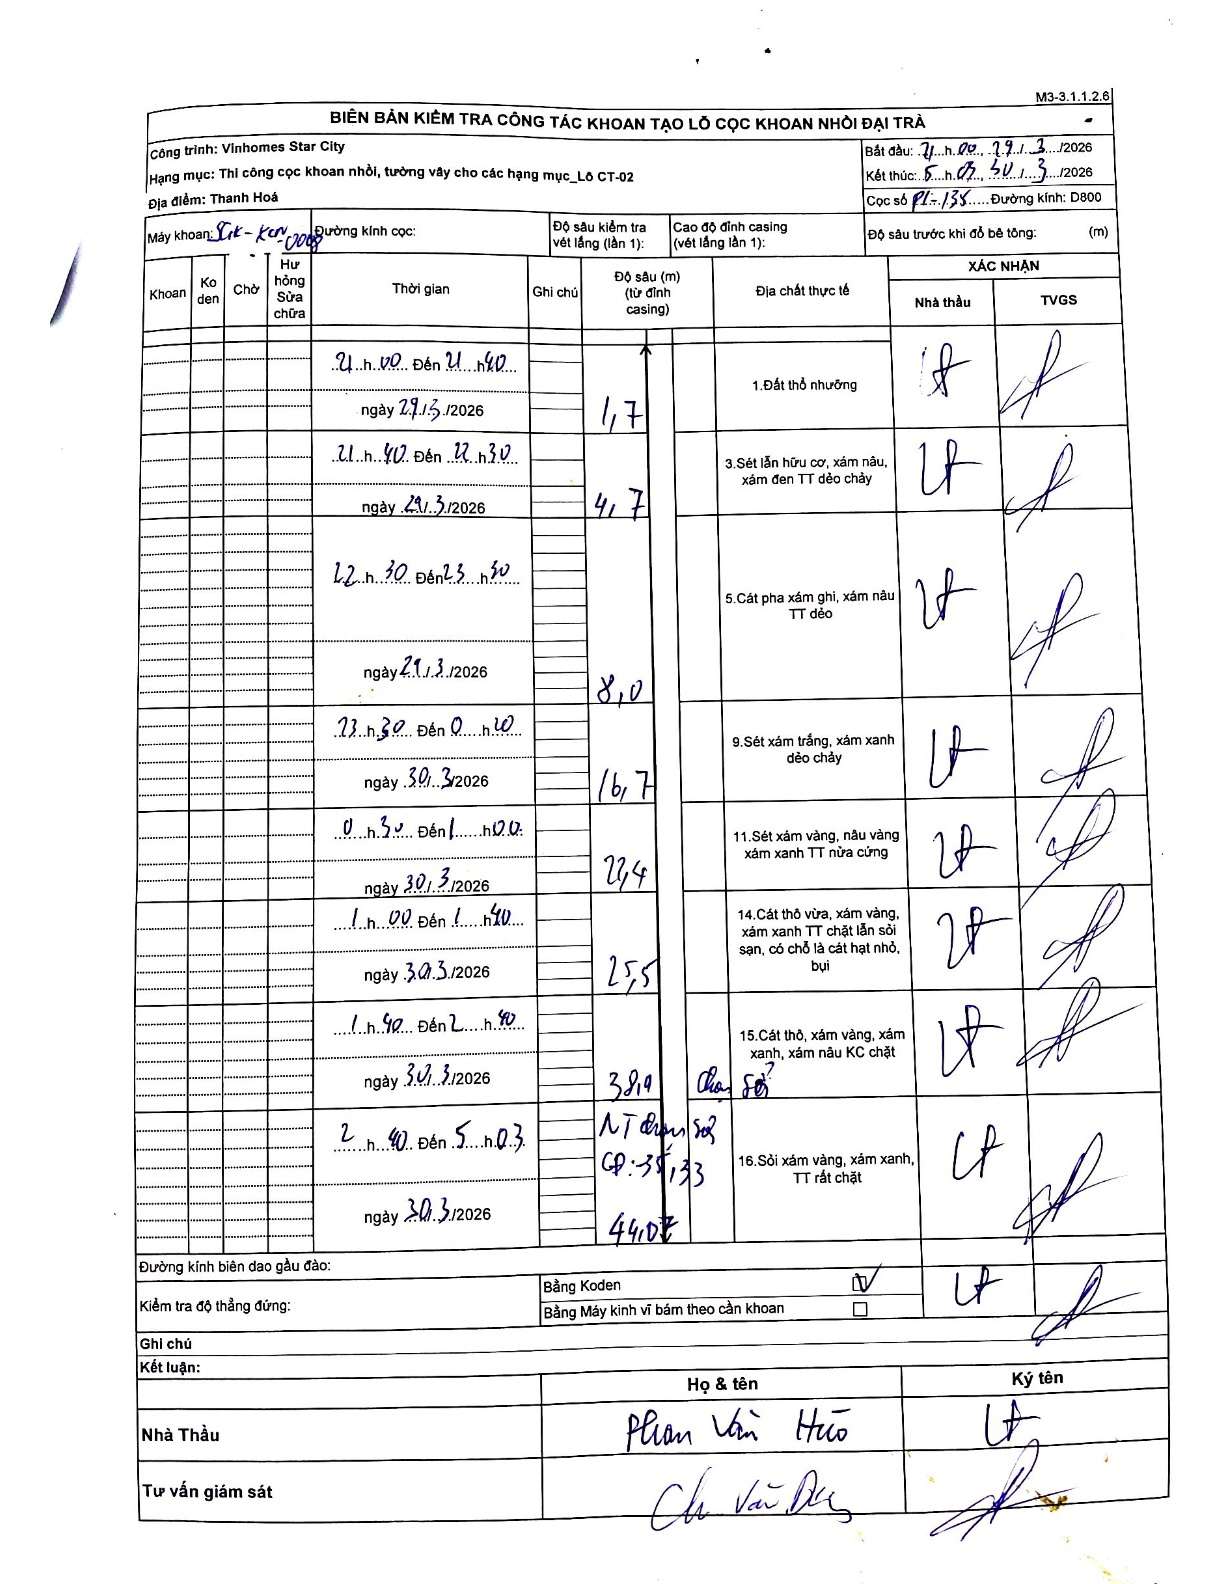 M3-3.1.1.2.6
BIÊN BẢN KIỂM TRA CÔNG TÁC KHOAN TẠO LỖ CỌC KHOAN NHỒI ĐẠI TRÀ
Công trình: Vinhomes Star City
Hạng mục: Thi công cọc khoan nhồi, tường vây cho các hạng mục_Lô CT-02
Địa điểm: Thanh Hoá
Bắt đầu: 21 h 00, 29 / 3 /2026
Kết thúc: 5 h 03, 30 / 3 /2026
Cọc số P1-135 Đường kính: D800
Máy khoan:
Đường kính cọc:
Độ sâu kiểm tra vét lắng (lần 1):
Cao độ đỉnh casing (vét lắng lần 1):
Độ sâu trước khi đổ bê tông: (m)
Khoan
Ko den
Chờ
Hư hỏng Sửa chữa
Thời gian
Ghi chú
Độ sâu (m) (từ đỉnh casing)
Địa chất thực tế
XÁC NHẬN
Nhà thầu
TVGS
21 h 00 Đến 21 h 40
ngày 29/3/2026
1,7
1.Đất thổ nhưỡng
21 h 40 Đến 22 h 30
ngày 29/3/2026
4,7
3.Sét lẫn hữu cơ, xám nâu,
xám đen TT dẻo chảy
22 h 30 Đến 23 h 30
ngày 29/3/2026
8,0
5.Cát pha xám ghi, xám nâu
TT dẻo
23 h 30 Đến 0 h 20
ngày 30/3/2026
16,7
9.Sét xám trắng, xám xanh
dẻo chảy
0 h 30 Đến 1 h 00
ngày 30/3/2026
22,4
11.Sét xám vàng, nâu vàng
xám xanh TT nửa cứng
1 h 00 Đến 1 h 40
ngày 30/3/2026
25,5
14.Cát thô vừa, xám vàng,
xám xanh TT chặt lẫn sỏi
sạn, có chỗ là cát hạt nhỏ,
bụi
1 h 40 Đến 2 h 40
ngày 30/3/2026
38,9
15.Cát thô, xám vàng, xám
xanh, xám nâu KC chặt
Chạm sỏi
2 h 40 Đến 5 h 03
ngày 30/3/2026
NT chạm sỏi
CĐ:-35,33
44,07
16.Sỏi xám vàng, xám xanh,
TT rất chặt
Đường kính biên dao gầu đào:
Kiểm tra độ thẳng đứng:
Bằng Koden
Bằng Máy kinh vĩ bám theo cần khoan
Ghi chú
Kết luận:
Họ & tên
Ký tên
Nhà Thầu
Phan Văn
Tư vấn giám sát
Văn